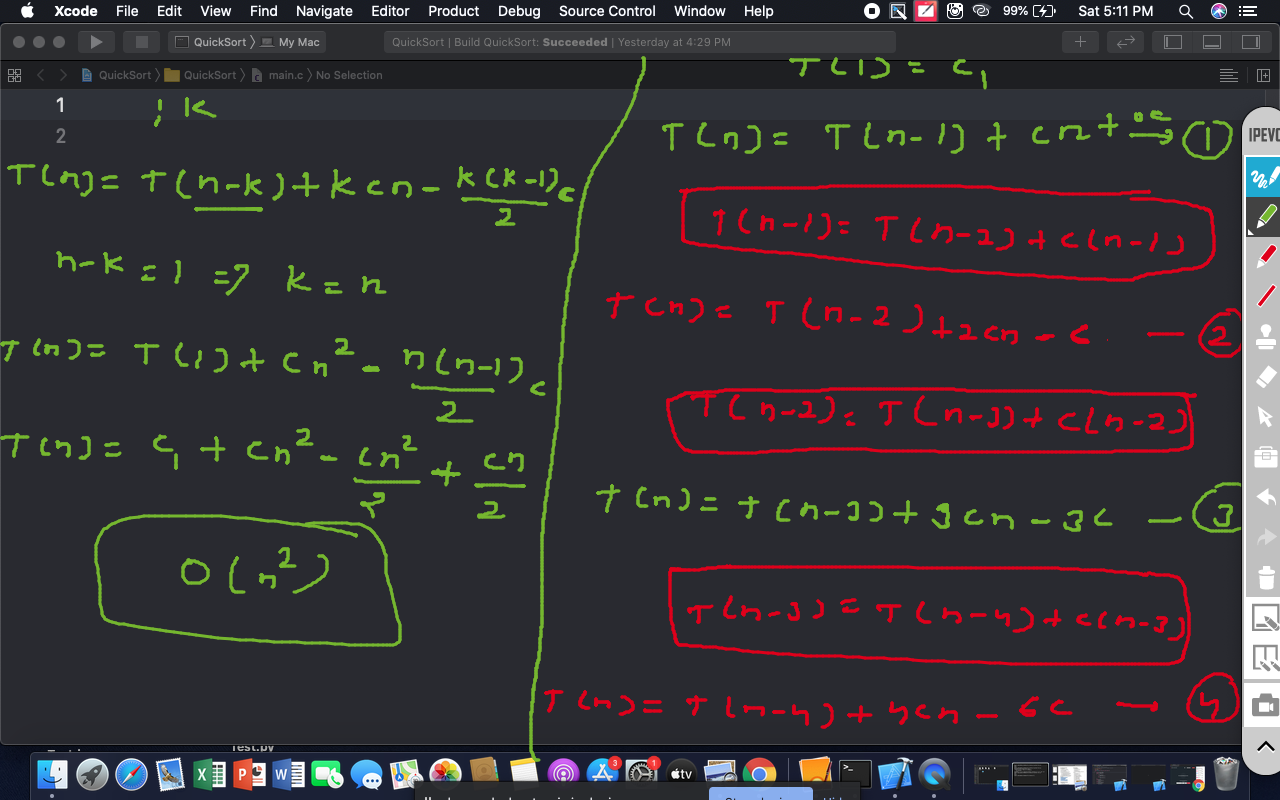 Xcode File Edit View Find Navigate Editor Product Debug Source Control Window Help 99% Sat 5:11 PM
QuickSort 〉 My Mac QuickSort | Build QuickSort: Succeeded | Yesterday at 4:29 PM
QuickSort 〉 QuickSort 〉 main.c 〉 No Selection
1
2
; k
T(n)= T(n-k)+kcn-k(k-1)/2 c
n-k=1 => k=n
T(n)= T(1)+cn²-n(n-1)/2 c
T(n)= C₁+cn²-cn²/2+cn/2
O(n²)
T(1)=C₁
T(n)= T(n-1)+cn+oc→①
T(n-1)= T(n-2)+c(n-1)
T(n)= T(n-2)+2cn-c —②
T(n-2)= T(n-3)+c(n-2)
T(n)= T(n-3)+3cn-3c —③
T(n-3)= T(n-4)+c(n-3)
T(n)= T(n-4)+4cn-6c →④
IPEVO
Test.py
3
1
tv